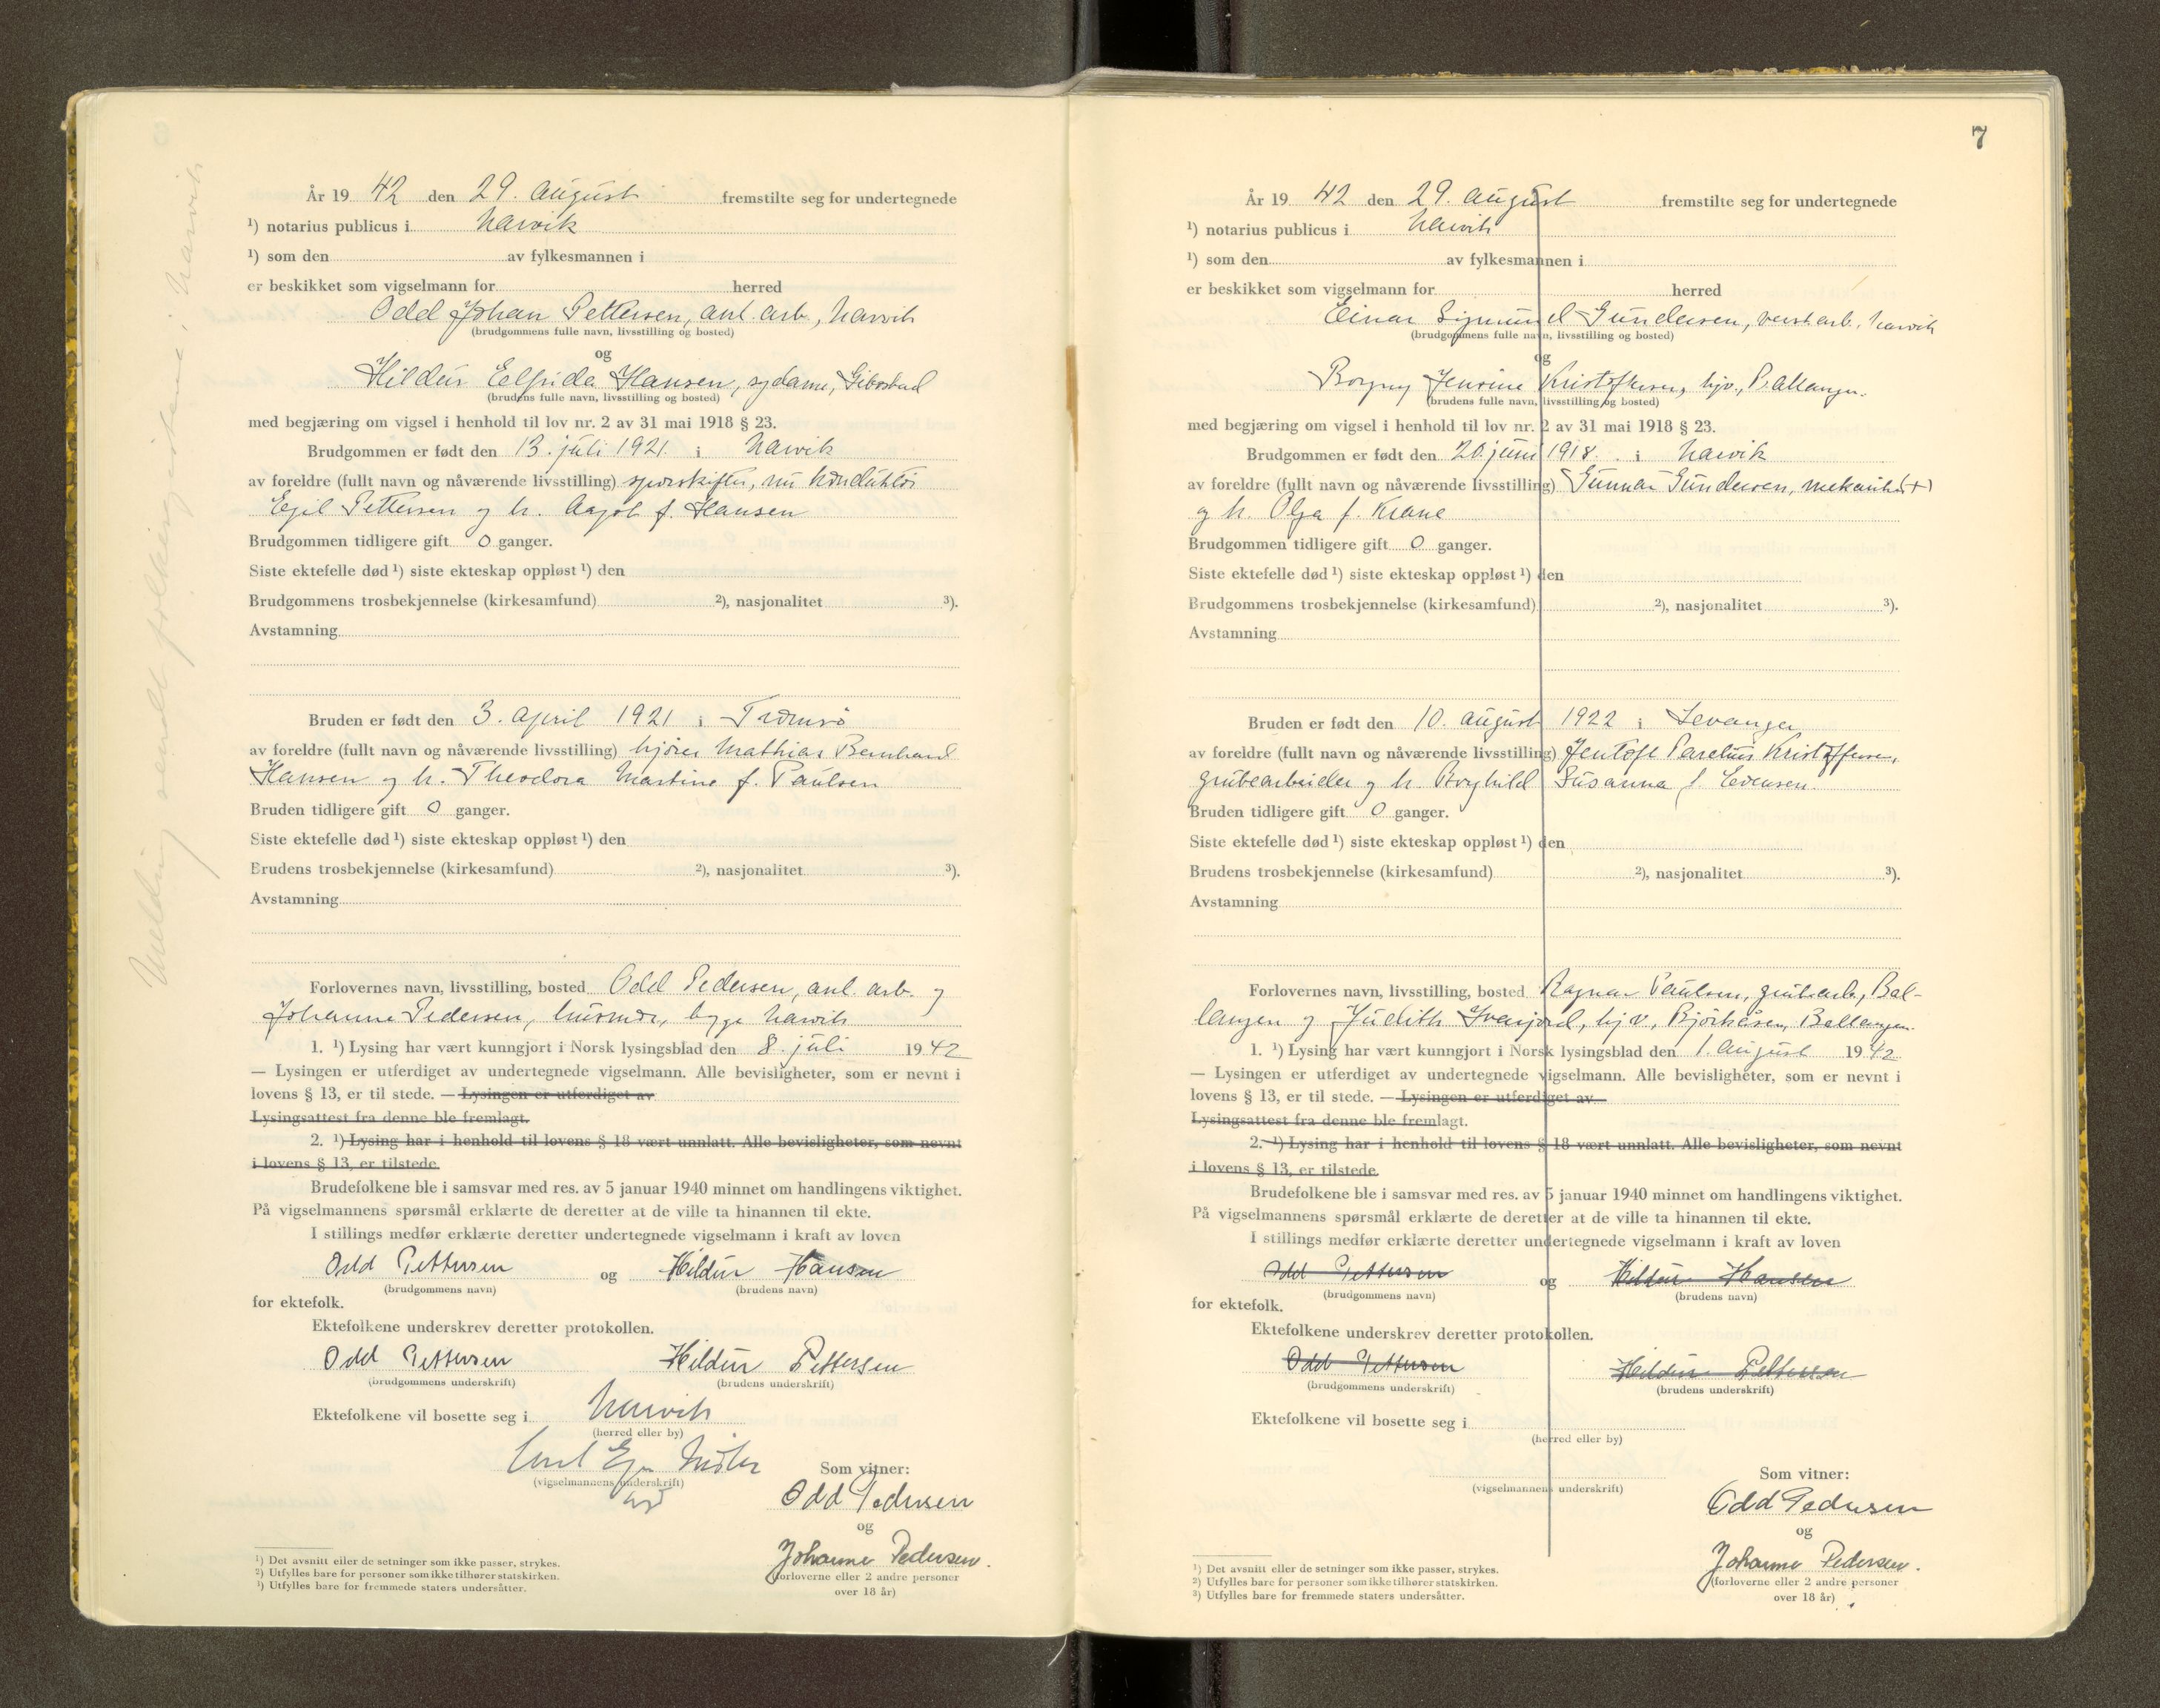 År 1942 den 29. august fremstilte seg for undertegnede
¹) notarius publicus i Narvik
¹) som den av fylkesmannen i
er beskikket som vigselmann for herred
Odd Johan Pettersen, anl. arb., Narvik
(brudgommens fulle navn, livsstilling og bosted)
og
Hildur Elfrida Hansen, sydame, Gibostad
(brudens fulle navn, livsstilling og bosted)
med begjæring om vigsel i henhold til lov nr. 2 av 31 mai 1918 § 23.
Brudgommen er født den 13. juli 1921 i Narvik
av foreldre (fullt navn og nåværende livsstilling) sporskifter, nu konduktør
Egil Pettersen og h. Aagot f. Hansen
Brudgommen tidligere gift 0 ganger.
Siste ektefelle død ¹) siste ekteskap oppløst ¹) den
Brudgommens trosbekjennelse (kirkesamfund) ²), nasjonalitet ³).
Avstamning
Bruden er født den 3. april 1921 i Tromsø
av foreldre (fullt navn og nåværende livsstilling) Mathias Bernhard
Hansen og h. Theodora Martine f. Paulsen
Bruden tidligere gift 0 ganger.
Siste ektefelle død ¹) siste ekteskap oppløst ¹) den
Brudens trosbekjennelse (kirkesamfund) ²), nasjonalitet ³).
Avstamning
Forlovernes navn, livsstilling, bosted Odd Pedersen, anl. arb. og
Johanne Pedersen, husmor, begge Narvik
1. ¹) Lysing har vært kunngjort i Norsk lysingsblad den 8. juli 1942
— Lysingen er utferdiget av undertegnede vigselmann. Alle bevisligheter, som er nevnt i
lovens § 13, er til stede. — Lysingen er utferdiget av
Lysingsattest fra denne ble fremlagt.
2. ¹) Lysing har i henhold til lovens § 18 vært unnlatt. Alle bevisligheter, som nevnt
i lovens § 13, er tilstede
Brudefolkene ble i samsvar med res. av 5 januar 1940 minnet om handlingens viktighet.
På vigselmannens spørsmål erklærte de deretter at de ville ta hinannen til ekte.
I stillings medfør erklærte deretter undertegnede vigselmann i kraft av loven
Odd Pettersen og Hildur Hansen
(brudgommens navn) (brudens navn)
for ektefolk.
Ektefolkene underskrev deretter protokollen.
Odd Pettersen Hildur Pettersen
(brudgommens underskrift) (brudens underskrift)
Ektefolkene vil bosette seg i Narvik
(herred eller by)
(vigselmannens underskrift)
Som vitner:
Odd Pedersen
og
Johanne Pedersen.
(forloverne eller 2 andre personer
over 18 år)
¹) Det avsnitt eller de setninger som ikke passer, strykes.
²) Utfylles bare for personer som ikke tilhører statskirken.
³) Utfylles bare for fremmede staters undersåtter.
Melding sendt folkeregisteret i Narvik
7
År 1942 den 29. august fremstilte seg for undertegnede
¹) notarius publicus i Narvik
¹) som den av fylkesmannen i
er beskikket som vigselmann for herred
Einar Sigmund Gundersen, verkst.arb. Narvik
(brudgommens fulle navn, livsstilling og bosted)
og
Borgny Jensine Kristoffersen, hjv., Ballangen.
(brudens fulle navn, livsstilling og bosted)
med begjæring om vigsel i henhold til lov nr. 2 av 31 mai 1918 § 23.
Brudgommen er født den 20. juni 1918. i Narvik
av foreldre (fullt navn og nåværende livsstilling) Gunnar Gundersen, mekaniker (+)
og h. Olga f. Krane
Brudgommen tidligere gift 0 ganger.
Siste ektefelle død ¹) siste ekteskap oppløst ¹) den
Brudgommens trosbekjennelse (kirkesamfund) ²), nasjonalitet ³).
Avstamning
Bruden er født den 10. august 1922 i Levanger
av foreldre (fullt navn og nåværende livsstilling) Jentoft Parelius Kristoffersen,
grubearbeider og h. Borghild Susanna f. Evensen.
Bruden tidligere gift 0 ganger.
Siste ektefelle død ¹) siste ekteskap oppløst ¹) den
Brudens trosbekjennelse (kirkesamfund) ²), nasjonalitet ³).
Avstamning
Forlovernes navn, livsstilling, bosted Ragnar Paulsen, grubearb, Bal-
langen og Judith hjv, Bjørkåsen, Ballangen.
1. ¹) Lysing har vært kunngjort i Norsk lysingsblad den 1. august 1942
— Lysingen er utferdiget av undertegnede vigselmann. Alle bevisligheter, som er nevnt i
lovens § 13, er til stede. — Lysingen er utferdiget av
Lysingsattest fra denne ble fremlagt.
2. ¹) Lysing har i henhold til lovens § 18 vært unnlatt. Alle bevisligheter, som nevnt
i lovens § 13, er tilstede
Brudefolkene ble i samsvar med res. av 5 januar 1940 minnet om handlingens viktighet.
På vigselmannens spørsmål erklærte de deretter at de ville ta hinannen til ekte.
I stillings medfør erklærte deretter undertegnede vigselmann i kraft av loven
Odd Pettersen og Hildur Hansen
(brudgommens navn) (brudens navn)
for ektefolk.
Ektefolkene underskrev deretter protokollen.
Odd Pettersen Hildur Pettersen
(brudgommens underskrift) (brudens underskrift)
Ektefolkene vil bosette seg i
(herred eller by)
(vigselmannens underskrift)
Som vitner:
Odd Pedersen
og
Johanne Pedersen.
(forloverne eller 2 andre personer
over 18 år)
¹) Det avsnitt eller de setninger som ikke passer, strykes.
²) Utfylles bare for personer som ikke tilhører statskirken.
³) Utfylles bare for fremmede staters undersåtter.